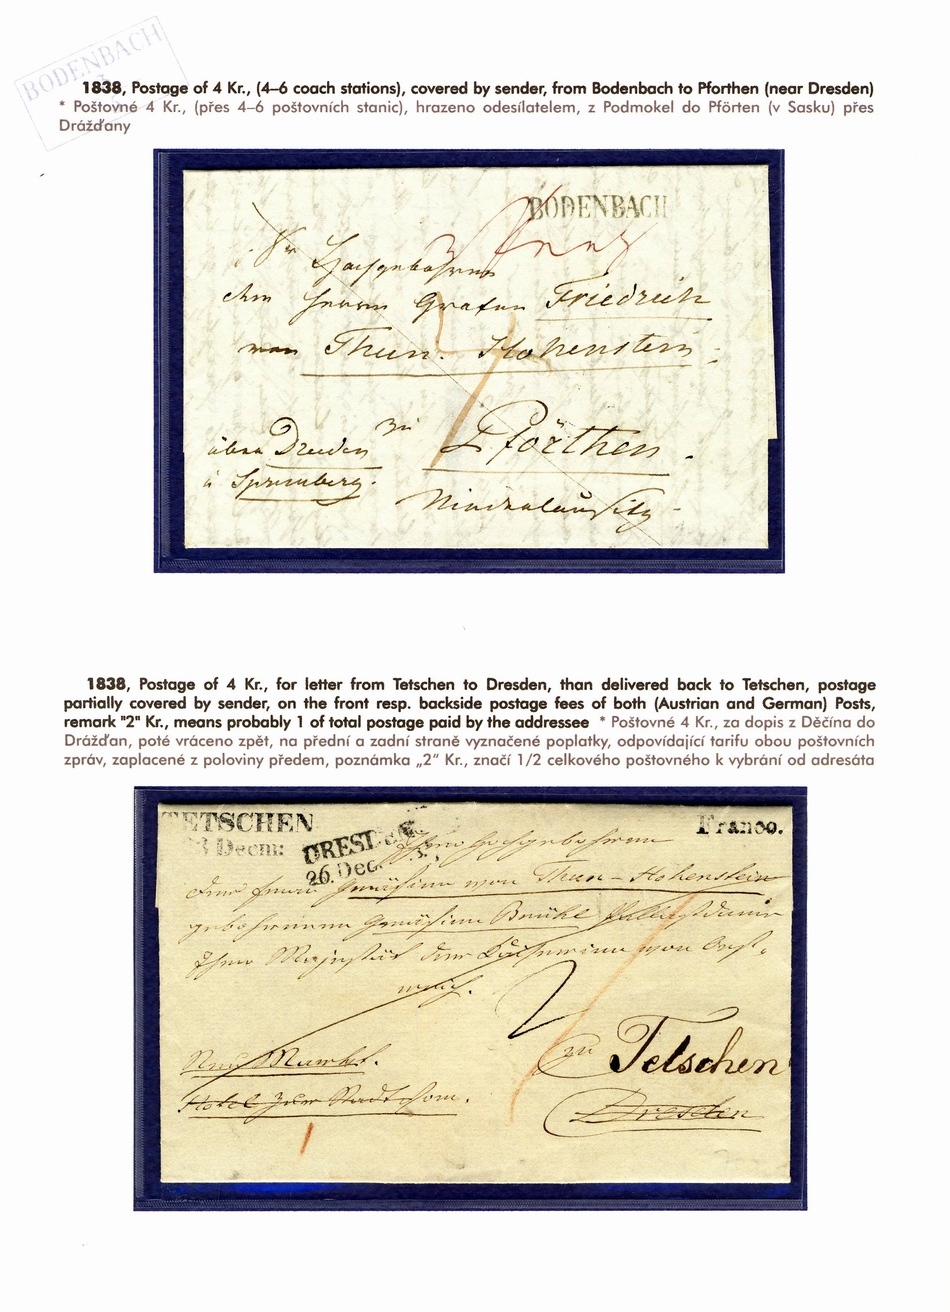 BODENBACH
1838, Postage of 4 Kr., (4–6 coach stations), covered by sender, from Bodenbach to Pforthen (near Dresden)
* Poštovné 4 Kr., (přes 4–6 poštovních stanic), hrazeno odesílatelem, z Podmokel do Pförten (v Sasku) přes
Drážďany
BODENBACH
Sr Hochgebohren
dem Herrn Grafen Friedrich
von Thun. Hohenstein
zu Pförthen.
über Dresden
Spremberg.
Niederlausitz
1838, Postage of 4 Kr., for letter from Tetschen to Dresden, than delivered back to Tetschen, postage
partially covered by sender, on the front resp. backside postage fees of both (Austrian and German) Posts,
remark "2" Kr., means probably 1 of total postage paid by the addressee * Poštovné 4 Kr., za dopis z Děčína do
Drážďan, poté vráceno zpět, na přední a zadní straně vyznačené poplatky, odpovídající tarifu obou poštovních
zpráv, zaplacené z poloviny předem, poznámka „2“ Kr., značí 1/2 celkového poštovného k vybrání od adresáta
TETSCHEN
23 Decm:
DRESDEN
26. Dec.
Franco.
Ihro Hochgebohren
der Frau Gräfinn von Thun – Hohenstein
gebohrenen Gräfinn Brühl Pallastdame
Ihrer Majestät der Kaiserinn von Oest-
reich.
2
zu Tetschen
Neu Markt.
Hotel zur Stadt Rom.
Dresden